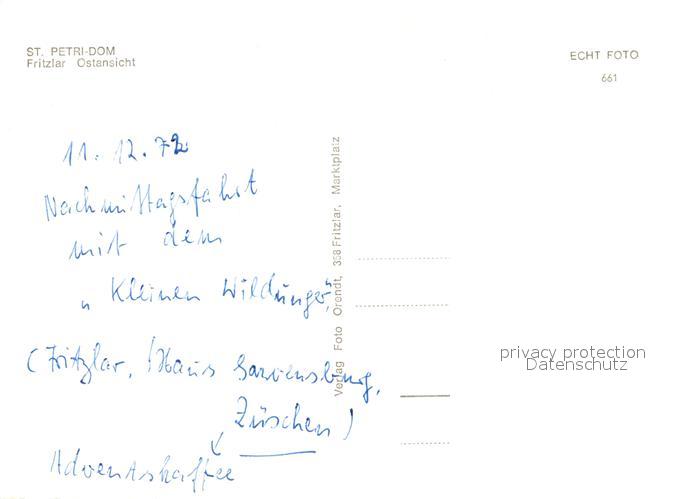 ST. PETRI-DOM
Fritzlar Ostansicht
ECHT FOTO
661
11. 12. 72
Nachmittagsfahrt
mit dem
„Kleinen Wildunger"
(Fritzlar, Haus
Züschen)
Adventskaffee
Verlag Foto Orendt, 358 Fritzlar, Marktplatz
privacy protection
Datenschutz